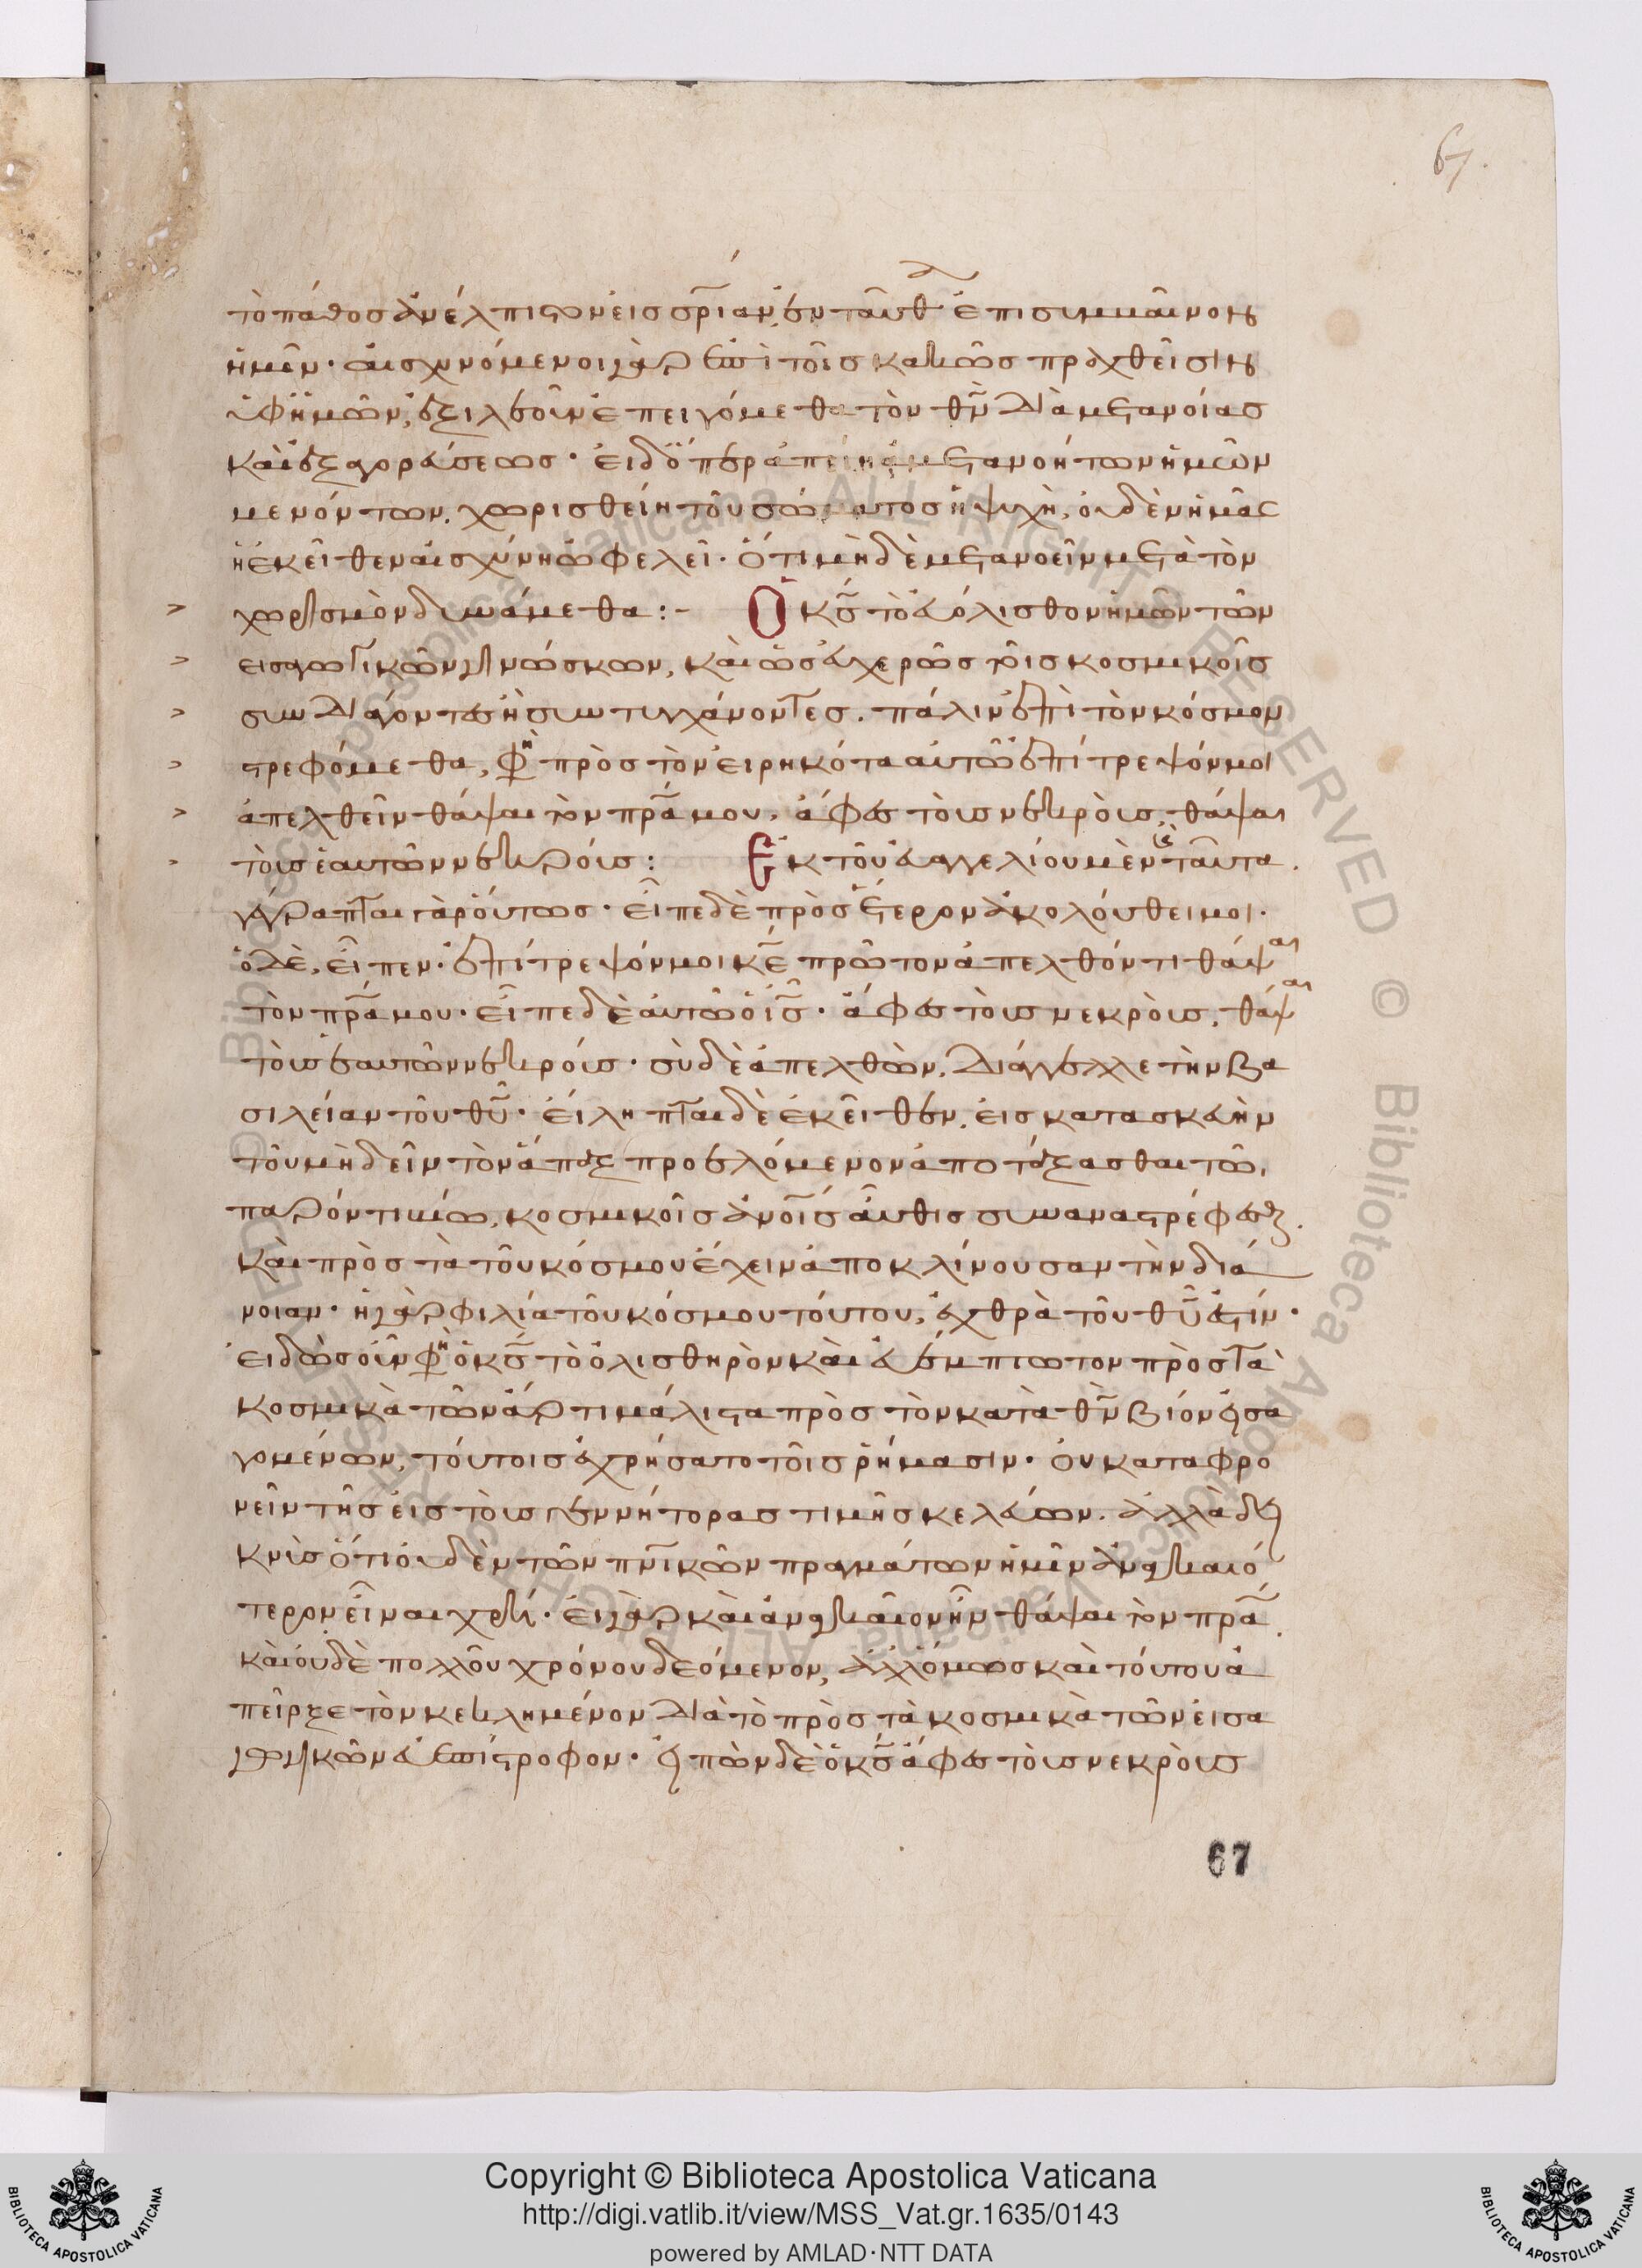 67
τὸ πάθος ἀνέλπιστον εἰς σρίαν, ἐν ταυθ ἐπισυμβαῖνον
ἡμῖν· αἰσχυνόμενοι γὰρ ἐπὶ τοῖς κακῶς πραχθεῖσιν
ὑφ ἡμῶν, ἐξιλεοῦν ἐπειγόμεθα τὸν θν διὰ μετανοίας
καὶ ἐξαγορεύσεως· εἰ δ
μενόντων, χωρισθείη τοῦ σώματος ἡ ψυχὴ, οὐδὲν ἡμᾶς
ἡ ἐκεῖθεν αἰσχύνη ὠφελεῖ· ὅτι μὴ δὲ μετανοεῖν μετὰ τὸν
χωρισμὸν δυνάμεθα :- Ὁ κς τὸ εὐόλισθον ἡμῶν τῶν
εἰσαγωγικῶν γινώσκων, καὶ ὡς εὐχερῶς τοῖς κοσμικοῖς
συνδιάγοντες ἢ συντυγχάνοντες, πάλιν ἐπὶ τὸν κόσμον
στρεφόμεθα, φη πρὸς τὸν εἰρηκότα αὐτῶ ἐπίτρεψόν μοι
ἀπελθεῖν θάψαι τὸν πρα μου, ἄφες τοὺς νεκροὺς, θάψαι
τοὺς ἑαυτῶν νεκρούς : Ἐκ τοῦ εὐαγγελίου μὲν ταῦτα.
γέγραπται γὰρ οὕτως· εἶπε δὲ πρὸς ἕτερον ἀκολούθει μοι·
ὁ δὲ, εἶπεν· ἐπίτρεψόν μοι κε πρῶτον ἀπελθόντι θάψαι
τὸν πρα μου· εἶπε δὲ αὐτῶ ὁ ις· ἄφες τοὺς νεκροὺς, θάψαι
τοὺς ἑαυτῶν νεκρούς· σὺ δὲ ἀπελθὼν, διάγγελλε τὴν βα
σιλείαν τοῦ θυ· εἴληπται δὲ ἐκεῖθεν, εἰς κατασκευὴν
τοῦ μὴ δεῖν τὸν ἅπαξ προελόμενον ἀποτάξασθαι τῶ
παρόντι βίω, κοσμικοῖς ἀνοις αὖθις συναναστρέφεσθαι.
καὶ πρὸς τὰ τοῦ κόσμου ἔχειν ἀποκλίνουσαν τὴν διά
νοιαν· ἡ γὰρ φιλία τοῦ κόσμου τούτου, ἔχθρα τοῦ θυ ἐστίν·
εἰδὼς οὖν φη ὁ κς τὸ ὀλισθηρὸν καὶ εὐέμπτωτον πρὸς τὰ
κοσμικὰ τῶν ἄρτι μάλιστα πρὸς τὸν κατὰ θν βίον εἰσα
γομένων, τούτοις ἐχρήσατο τοῖς ῥήμασιν· οὐ καταφρο
νεῖν τῆς εἰς τοὺς γεννήτορας τιμῆς κελεύων, ἀλλὰ δει
κνὺς ὅτι οὐδὲν τῶν πνικῶν πραγμάτων ἡμῖν ἀναγκαιό
τερον εἶναι χρή· εἰ γὰρ καὶ ἀναγκαῖον ἦν θάψαι τὸν πρα,
καὶ οὐδὲ πολλοῦ χρόνου δεόμενον, ἀλλ ὅμως καὶ τούτου ἀ
πεῖρξε τὸν κεκλημένον διὰ τὸ πρὸς τὰ κοσμικὰ τῶν εἰσα
γωγικῶν εὐεπίστροφον· εἰπὼν δὲ ὁ κς ἄφες τοὺς νεκροὺς
67
Copyright © Biblioteca Apostolica Vaticana
http://digi.vatlib.it/view/MSS_Vat.gr.1635/0143
powered by AMLAD·NTT DATA
BIBLIOTECA APOSTOLICA VATICANA
BIBLIOTECA APOSTOLICA VATICANA